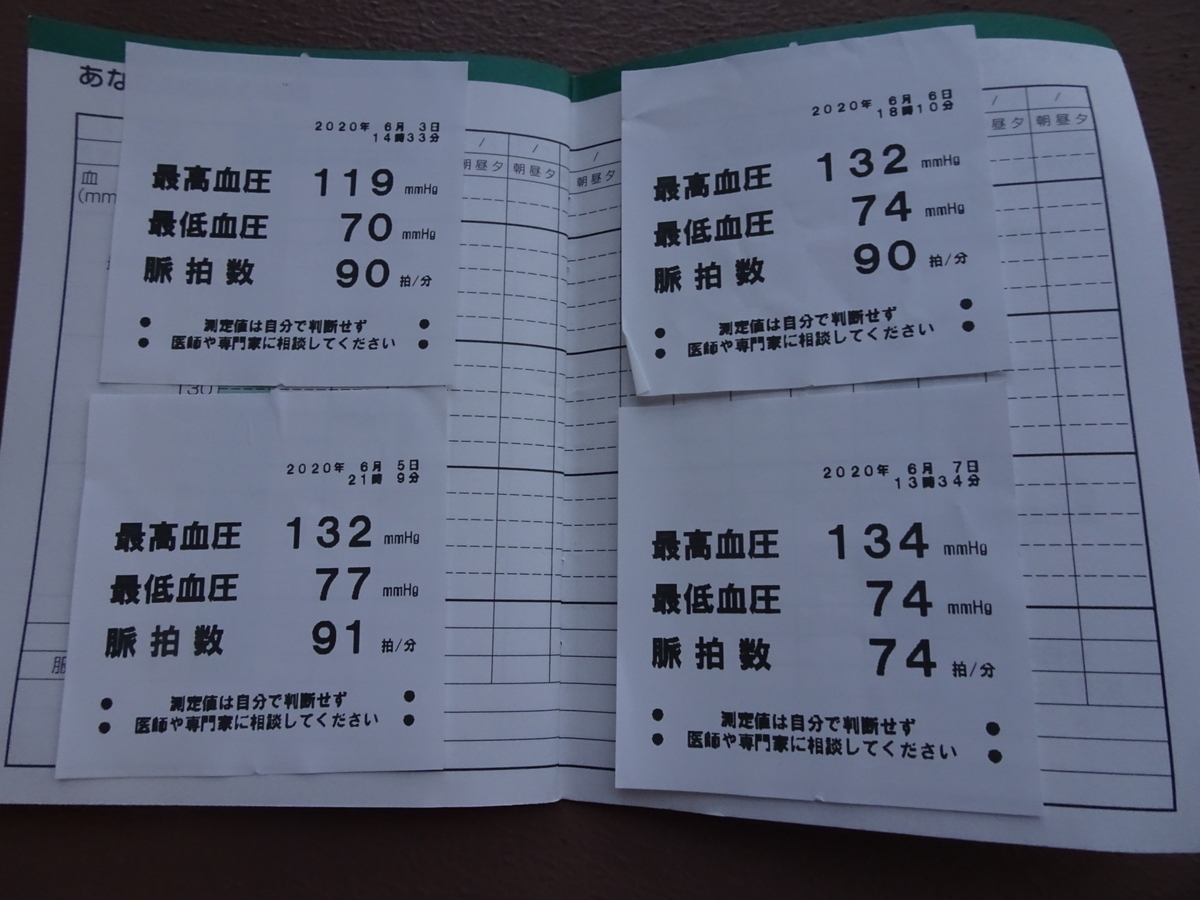 あな
血
(mm
130
服
2020年 6月 3日
14時33分
最高血圧 119 mmHg
最低血圧 70 mmHg
脈拍数 90 拍/分
● 測定値は自分で判断せず ●
● 医師や専門家に相談してください ●
2020年 6月 5日
21時 9分
最高血圧 132 mmHg
最低血圧 77 mmHg
脈拍数 91 拍/分
● 測定値は自分で判断せず ●
● 医師や専門家に相談してください ●
/ / /
朝昼夕 朝昼夕 朝昼夕
2020年 6月 6日
18時10分
最高血圧 132 mmHg
最低血圧 74 mmHg
脈拍数 90 拍/分
● 測定値は自分で判断せず ●
● 医師や専門家に相談してください ●
/ /
昼夕 朝昼夕
2020年 6月 7日
13時34分
最高血圧 134 mmHg
最低血圧 74 mmHg
脈拍数 74 拍/分
● 測定値は自分で判断せず ●
● 医師や専門家に相談してください ●